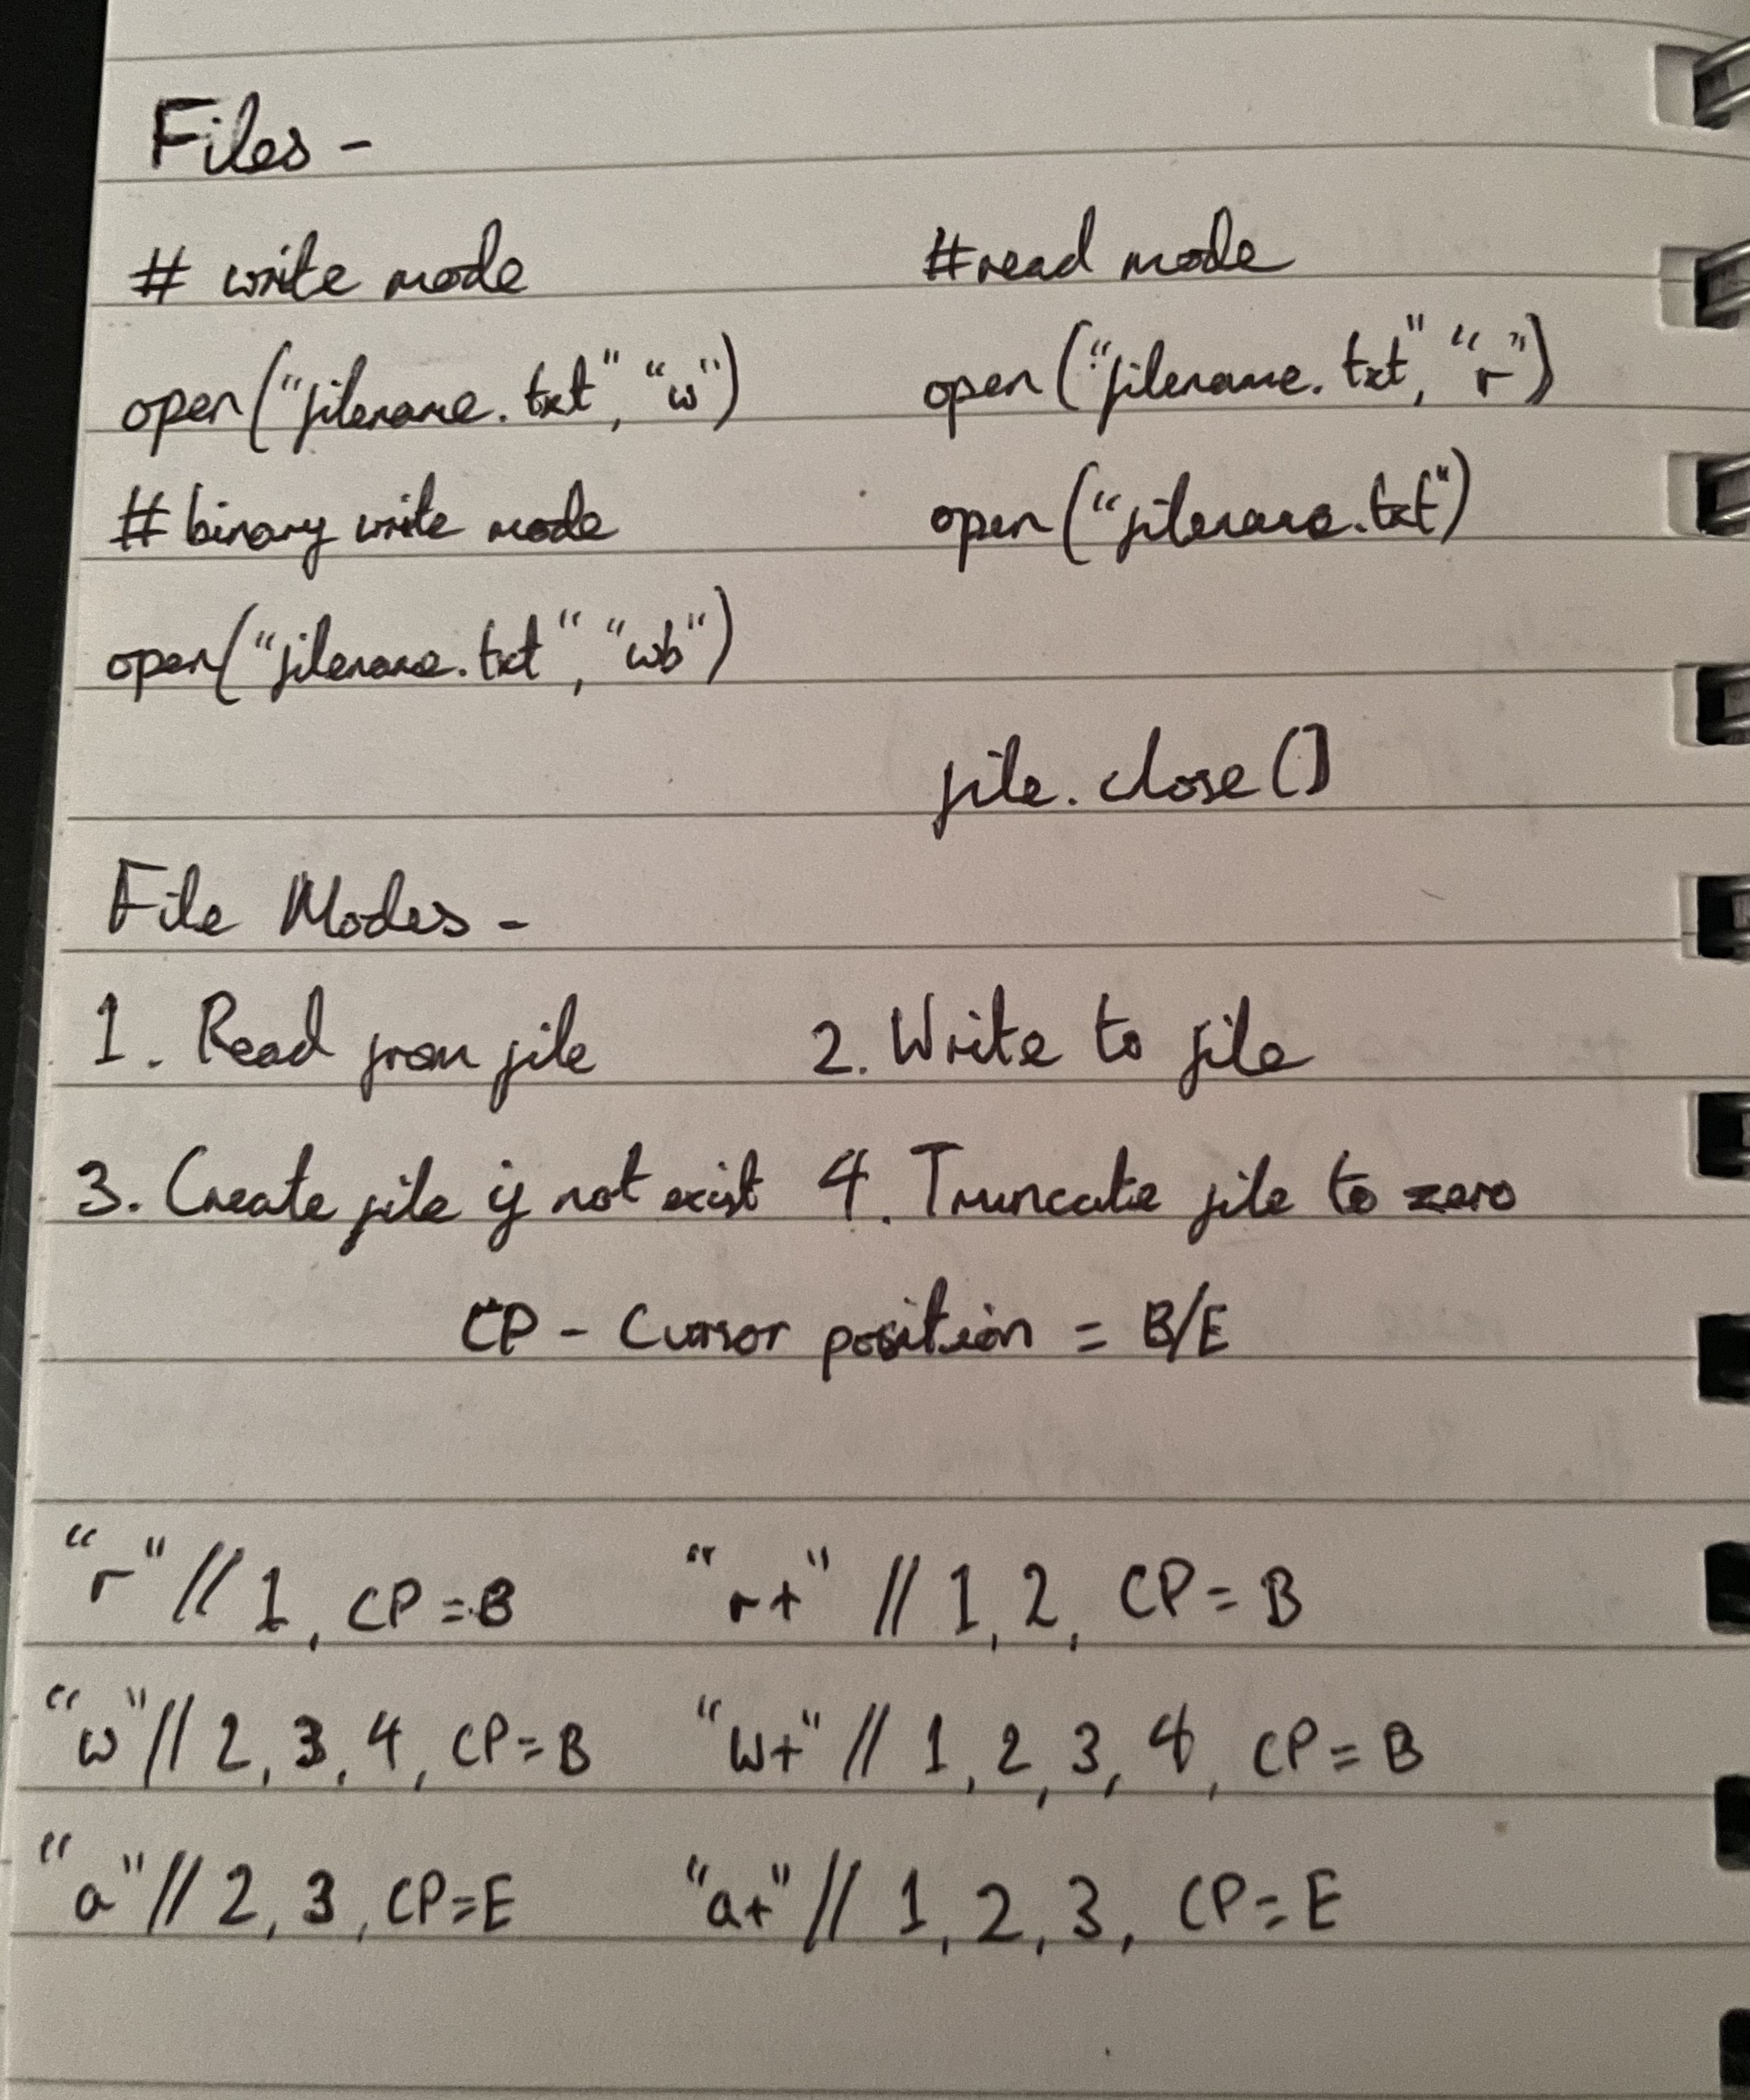 Files -
# write mode #read mode
open("filename.txt", "w") open("filename.txt", "r")
# binary write mode open("filename.txt")
open("filename.txt", "wb")
file.close()
File Modes -
1. Read from file 2. Write to file
3. Create file if not exist 4. Truncate file to zero
CP - Cursor position = B/E
"r" // 1, CP=B "r+" // 1, 2, CP=B
"w" // 2, 3, 4, CP=B "w+" // 1, 2, 3, 4, CP=B
"a" // 2, 3, CP=E "a+" // 1, 2, 3, CP=E